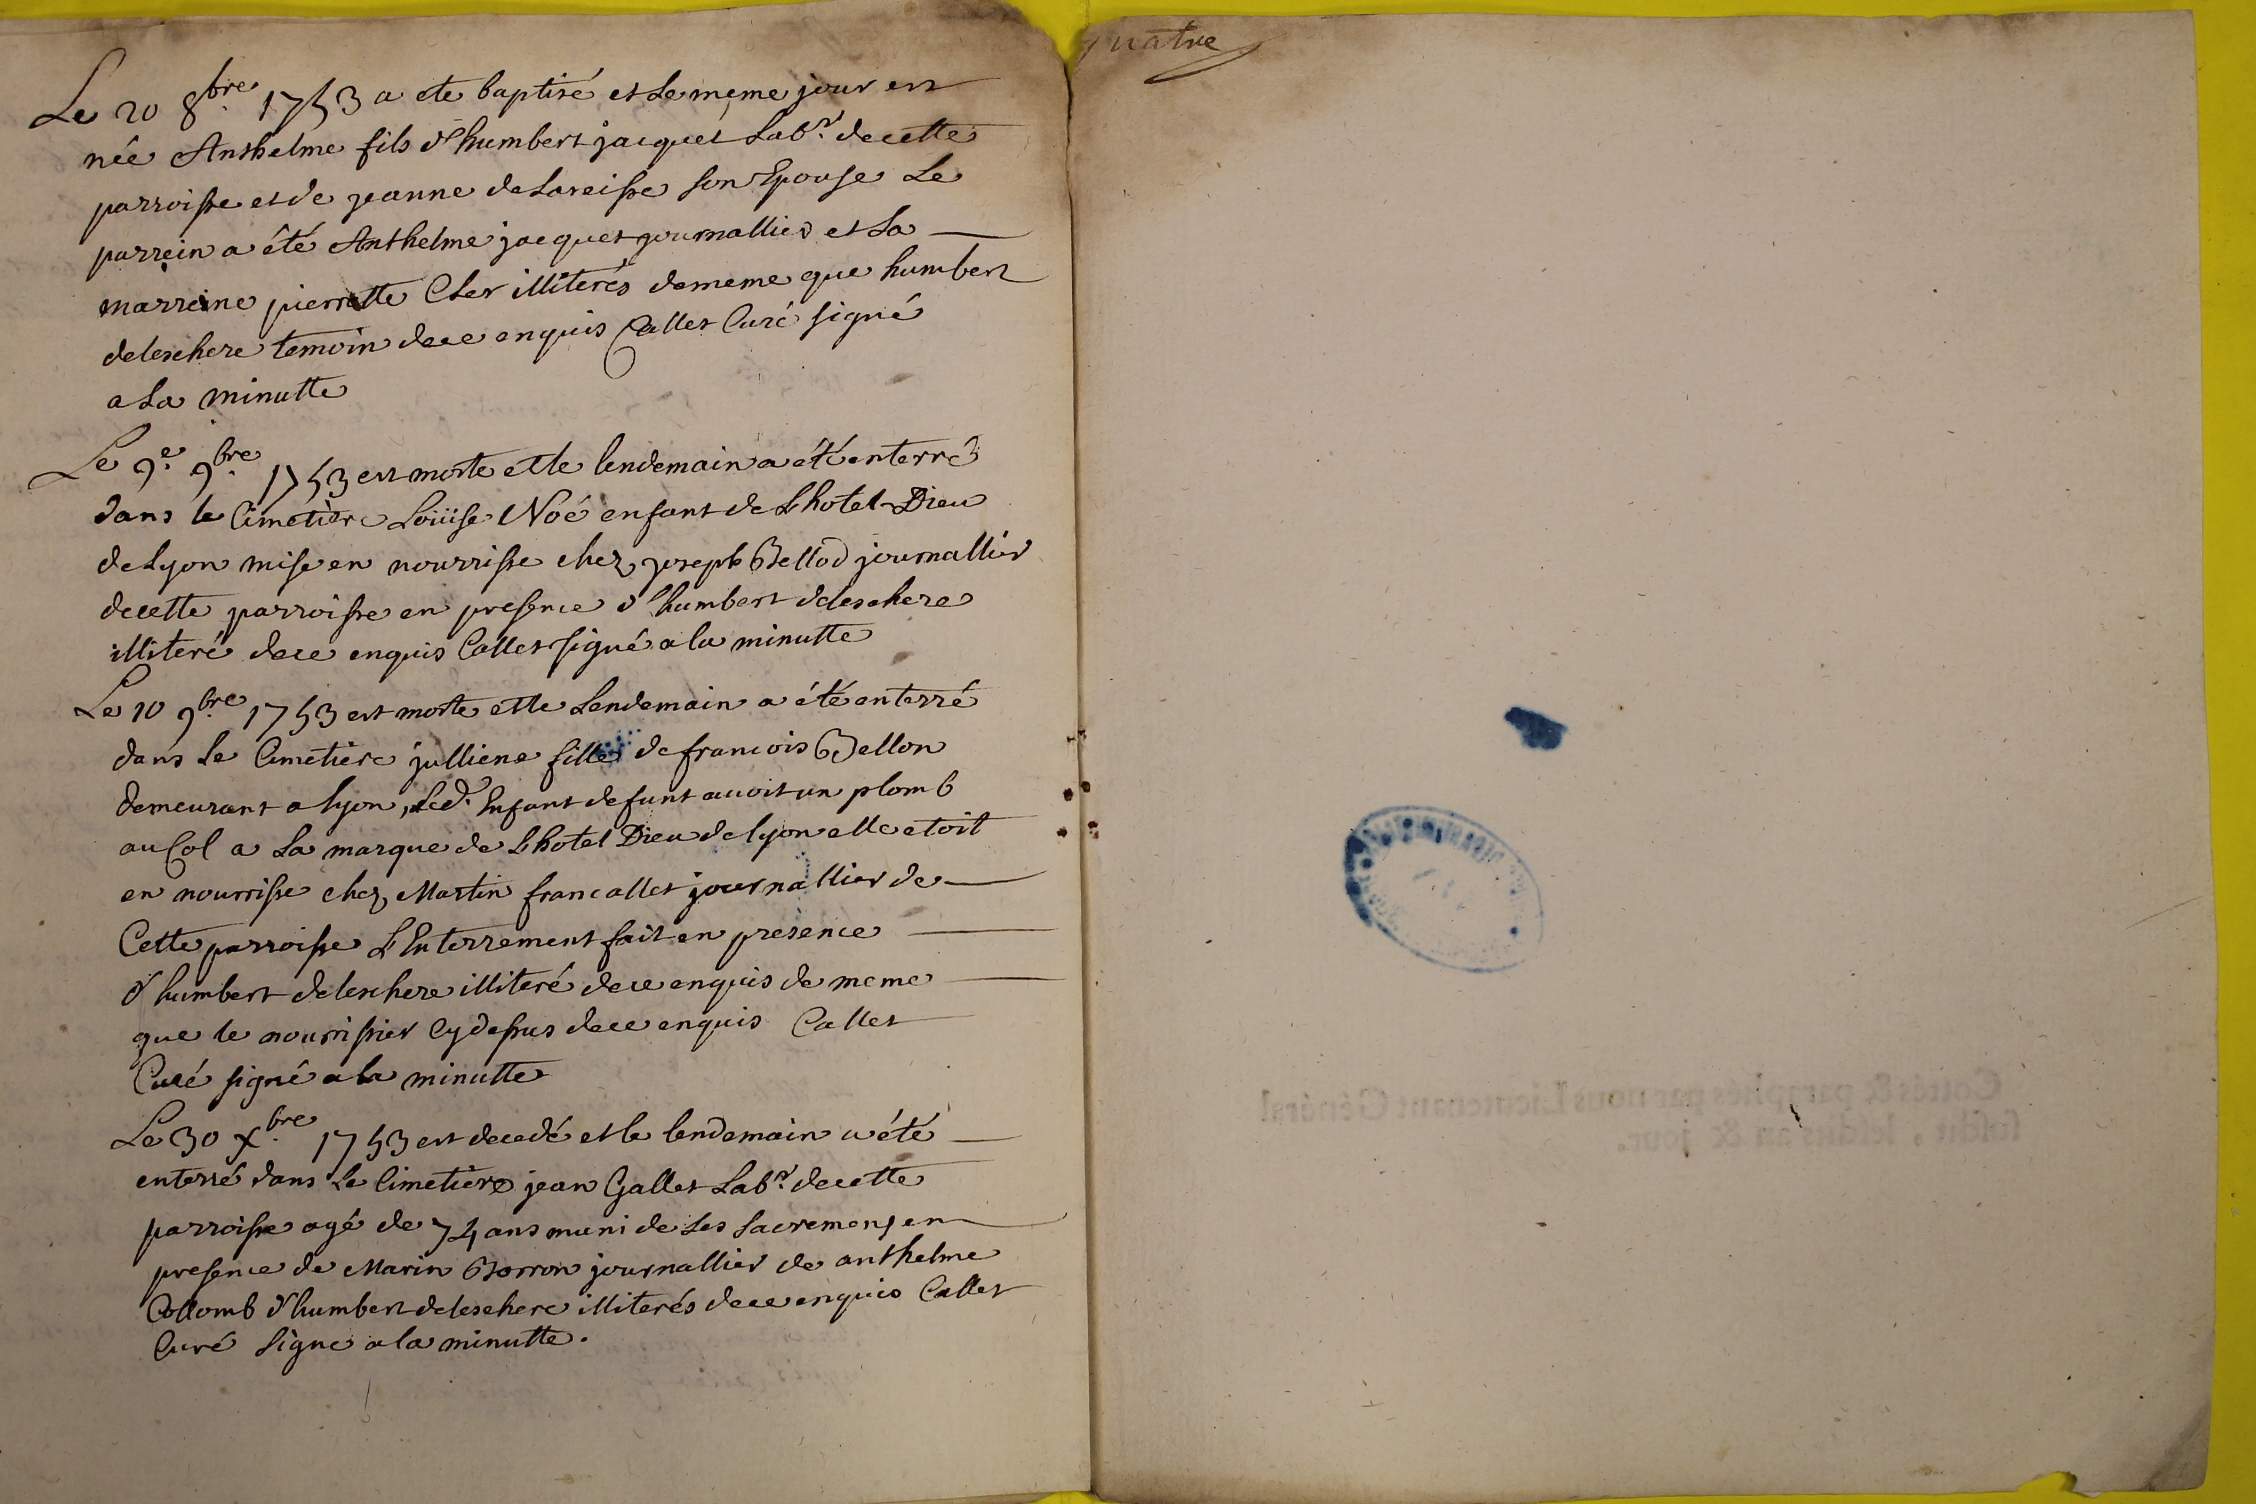 Le 20 8bre 1753 a ete baptisé et le meme jour est
née Anthelme fils d'humbert jacquet Labr. de cette
parroisse et de jeanne de Lareisse son Epouse Le
parrein a été Anthelme jacquet journallier et La
marreine pierrette Cler illiterés de meme que humbert
deleschere temoin de ce enquis Callet Curé signé
a La minutte
Le 9e. 9bre 1753 est morte et le lendemain a été enterré
dans le Cimetière Loüise Noé enfant de L'hotel Dieu
de Lyon mise en nourrisse chez joseph Bellod journallier
de cette parroisse en presence d'humbert deleschere
illiteré de ce enquis Callet signé a la minutte
Le 10 9bre 1753 est morte et le Lendemain a été enterré
dans Le Cimetière julliene fille de francois Bellon
demeurant a lyon, Led. Enfant defunt avoit un plomb
au Col a La marque de L'hotel Dieu de lyon elle etoit
en nourrisse chez Martin francallet journallier de
Cette parroisse L'Enterrement fait en presence
d'humbert deleschere illiteré de ce enquis de meme
que le nourrissier Cy dessus de ce enquis Callet
Curé signé a la minutte
Le 30 Xbre 1753 est decedé et le lendemain a été
enterré dans Le Cimetière jean Gallet Labr. de cette
parroisse agé de 74 ans muni de ses sacremens en
presence de Marin Borron journallier de anthelme
Collomb d'humbert deleschere illiterés de ce enquis Callet
Curé signe a la minutte.
quatre
Cottés & paraphés par nous Lieutenant Général
susdit, lesdits an & jour.